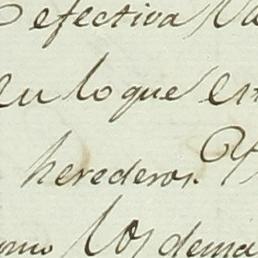 efectiva
en lo que
herederos. Y
los dema